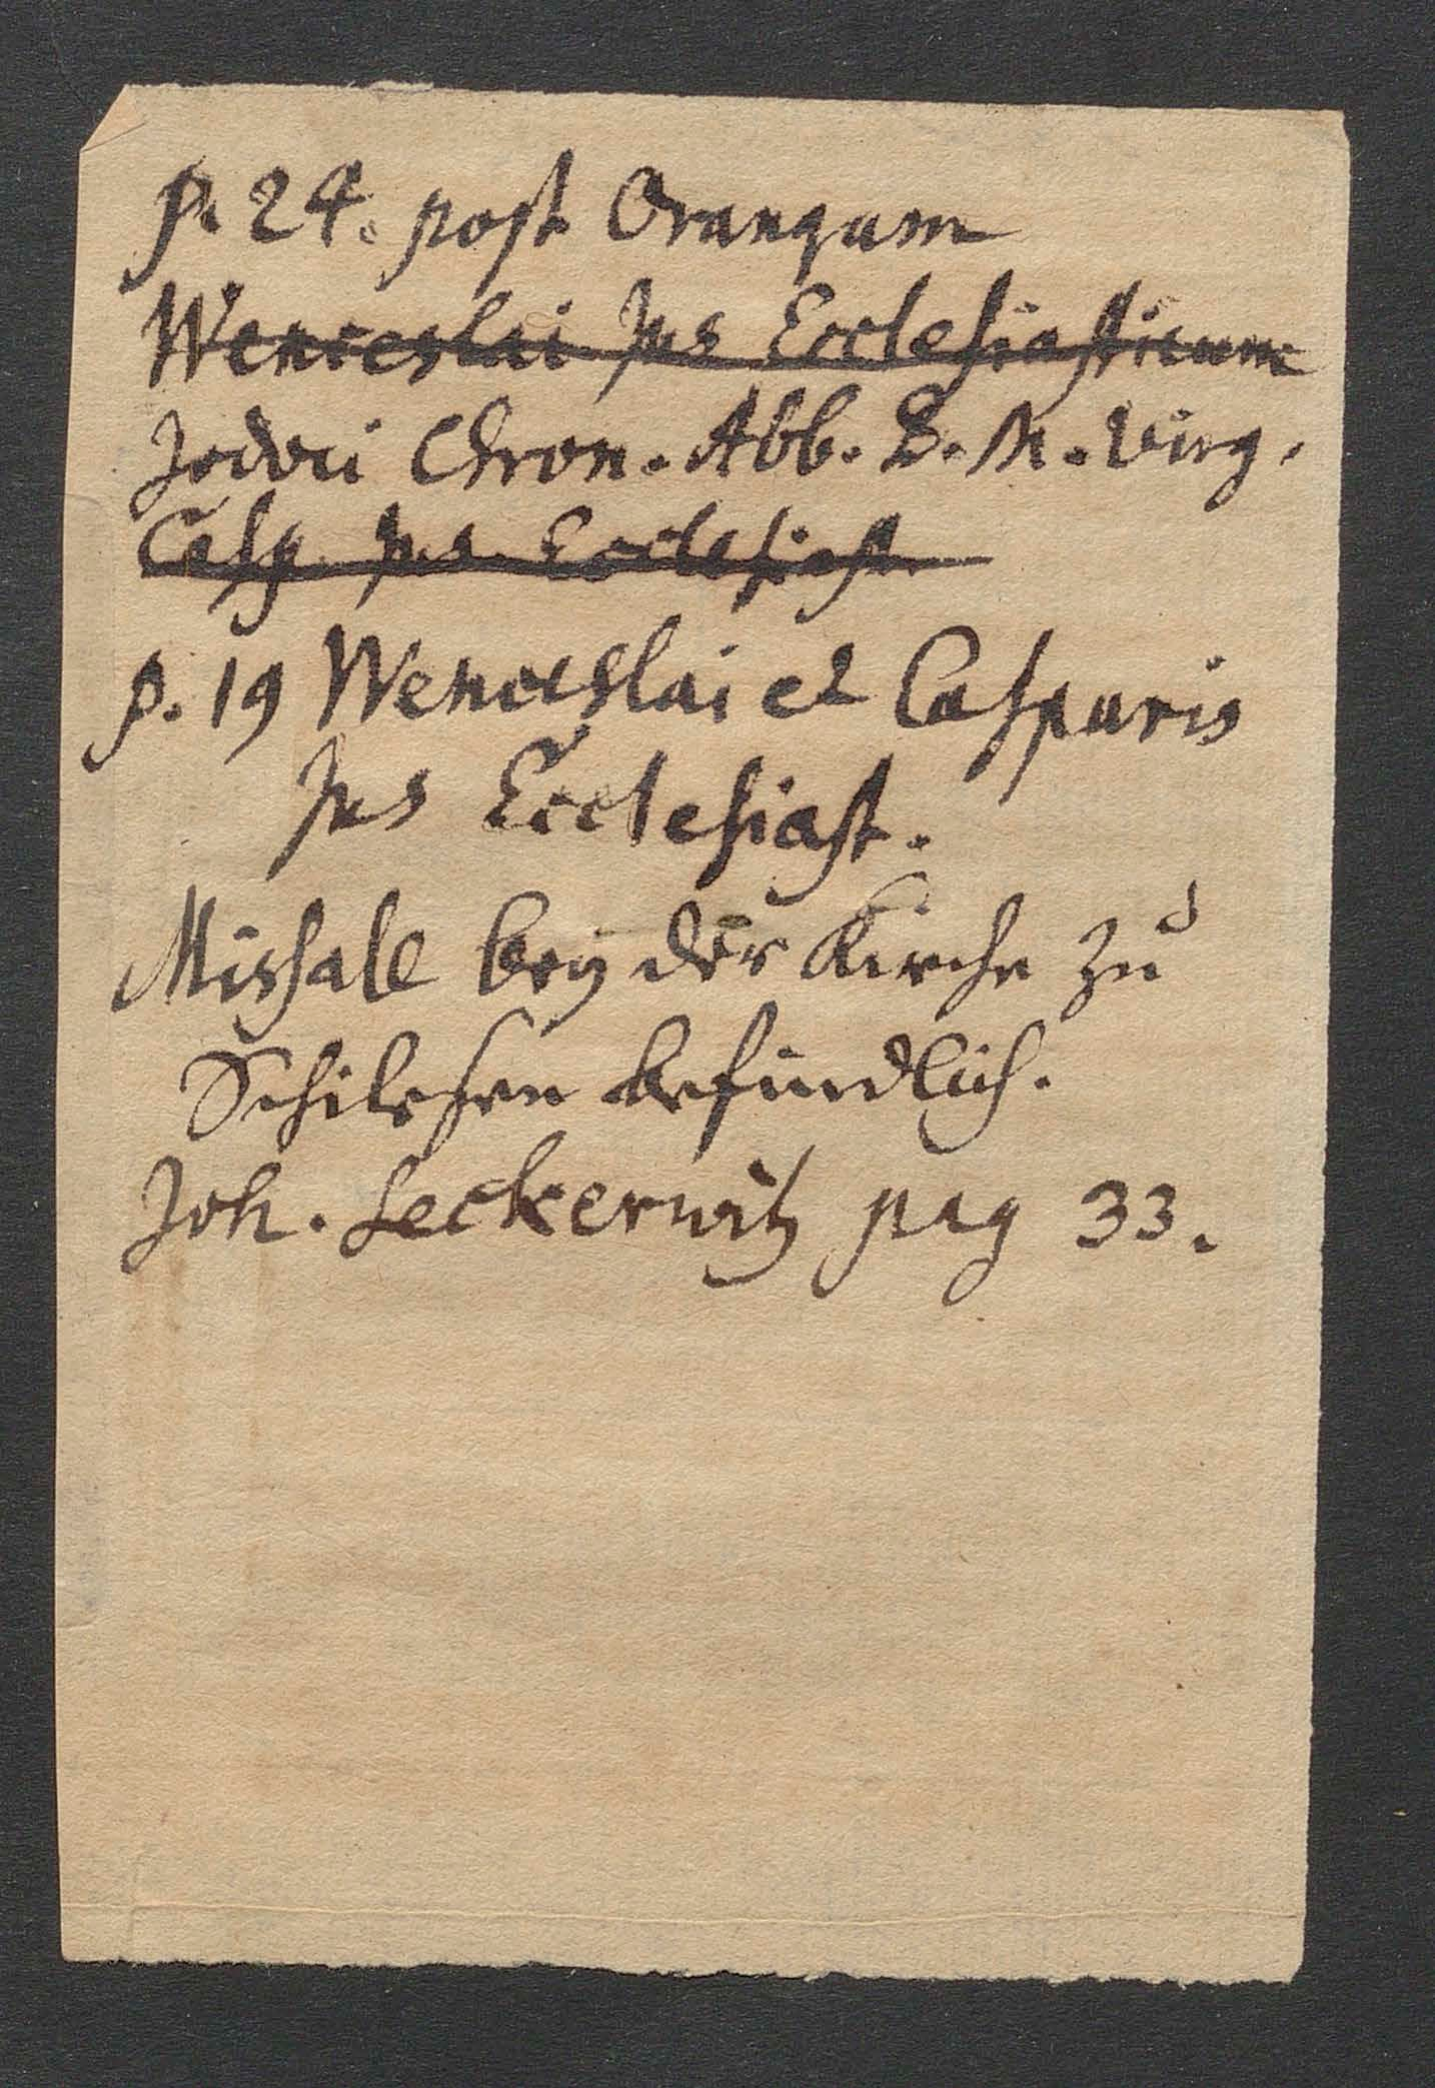 p. 24. post Oranquam
Wenceslai Jus Ecclesiasticum
Jodoci Chron. Abb. B. M. Virg.
Casp. Jus Ecclesiast.
p. 19 Wenceslai et Casparis
Jus Ecclesiast.
Missale bey der Kirche zu
befindlich.
Joh. Leckerwitz pag 33.